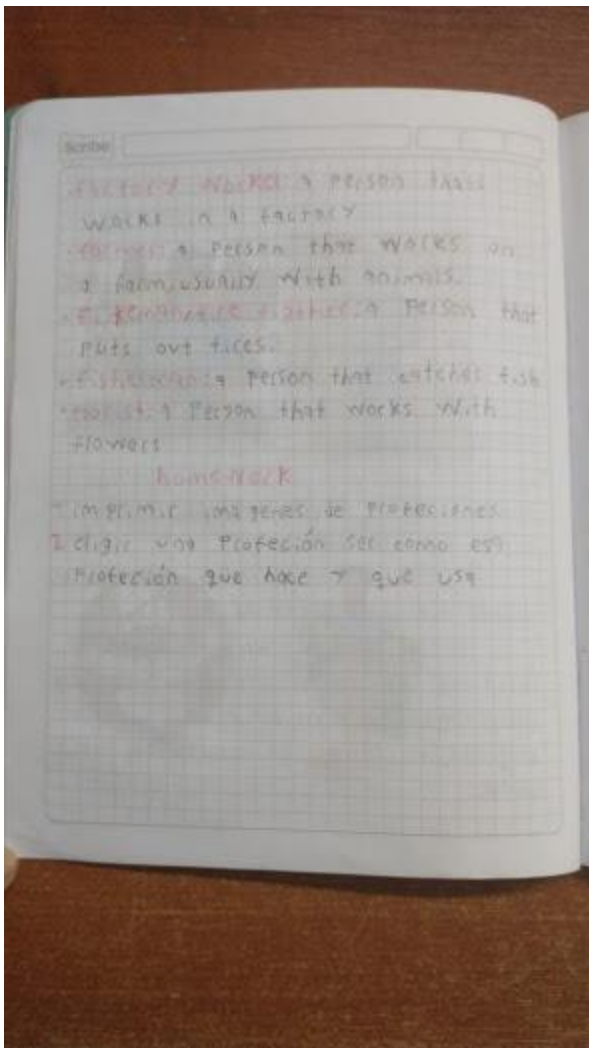 Scribe
factory worker: a person thats
works in a factory
farmer: a person that works on
a farm, usually with animals.
fire fighter: a person that
puts out fires.
fisherman: a person that catches fish
a person that works with
flowers
homework
1 imprimir imágenes de profeciones
2 eligir una profeción ser como esa
profeción que hace y que usa